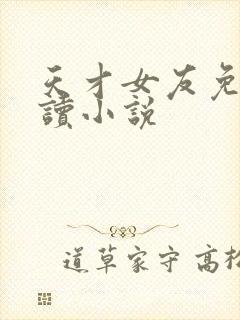 天才女友免
讀小說
道草家守高松